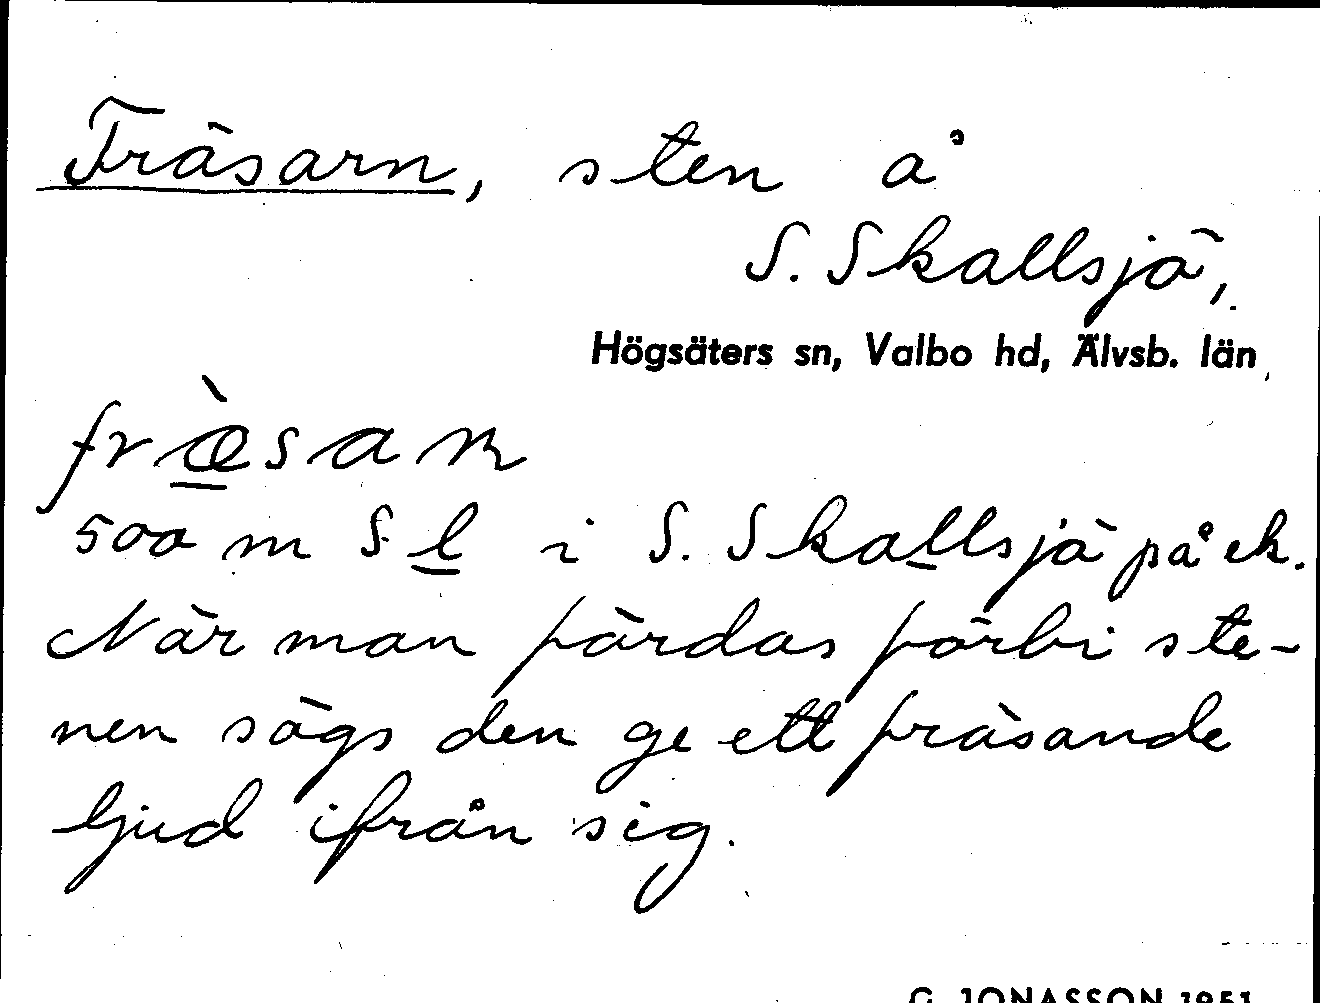 Fräsarn, sten å
S. Skallsjö,
Högsäters sn, Valbo hd, Älvsb. län
fræ̀saɳ
500 m S l i S. Skallsjö på ek.
När man färdas förbi ste-
nen sägs den ge ett fräsande
ljud ifrån sig.
G. JONASSON 1951